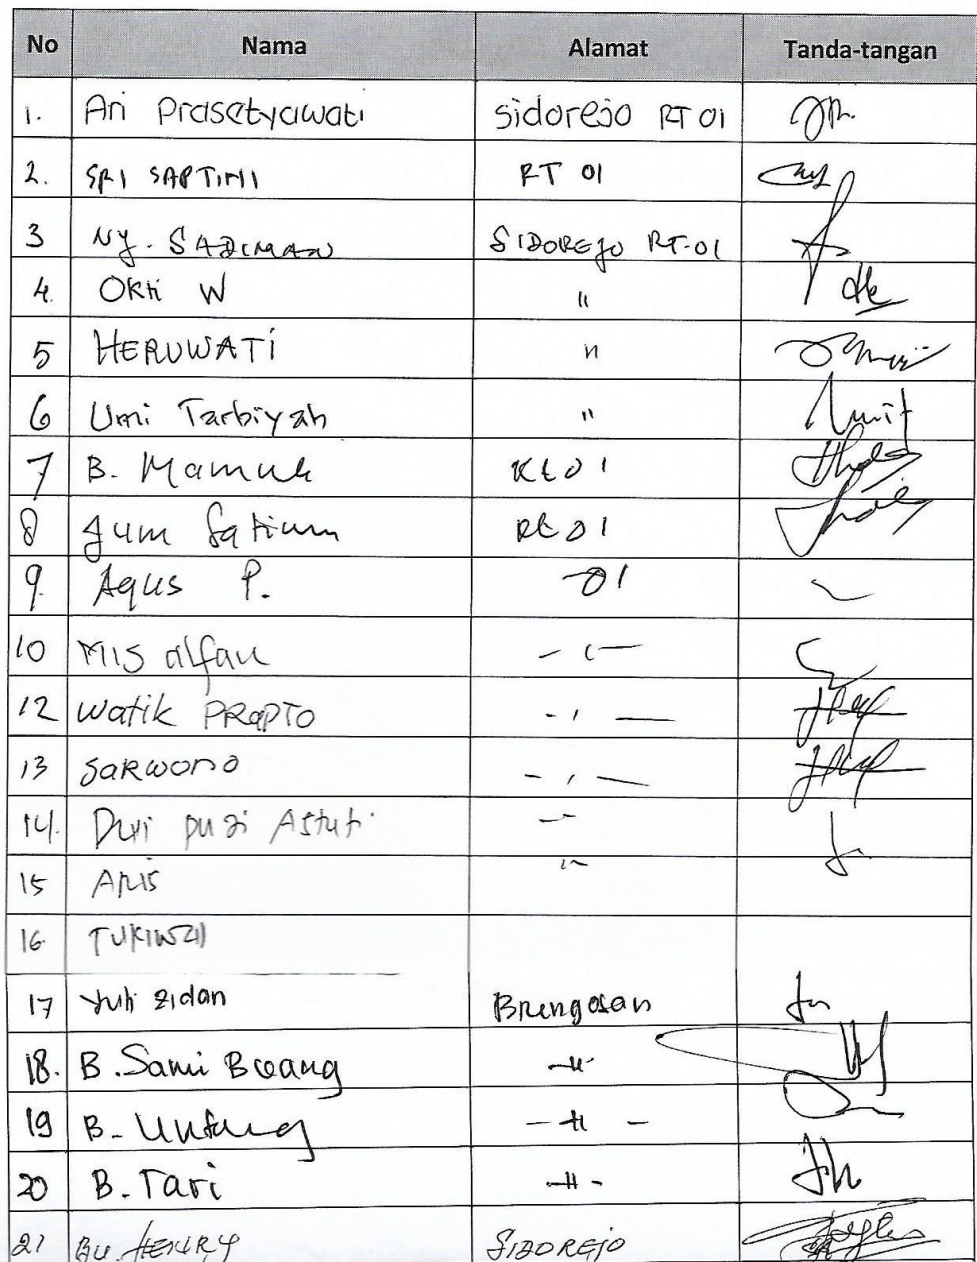 No Nama Alamat Tanda-tangan
1. Ari Prasetyawati Sidorejo RT 01
2. SRI SAPTINI RT 01
3 NY. SADIMAN SIDOREJO RT.01
4. Okti W "
5 HERUWATI "
6 Umi Tarbiyah "
7 B. Mamuk Rt 01
8 Jum Satium Rt 01
9. Agus P. 01
10 Mis alfan - " -
12 Watik PRAPTO - " -
13 SARWONO - " -
14. Dwi puji Astuti - " -
15 Aris "
16. TUKIWAN
17 Yuli Zidan Brengosan
18. B. Sami - " -
19 B. Untung - " -
20 B. Tari - " -
21 BU. HENRY SIDOREJO